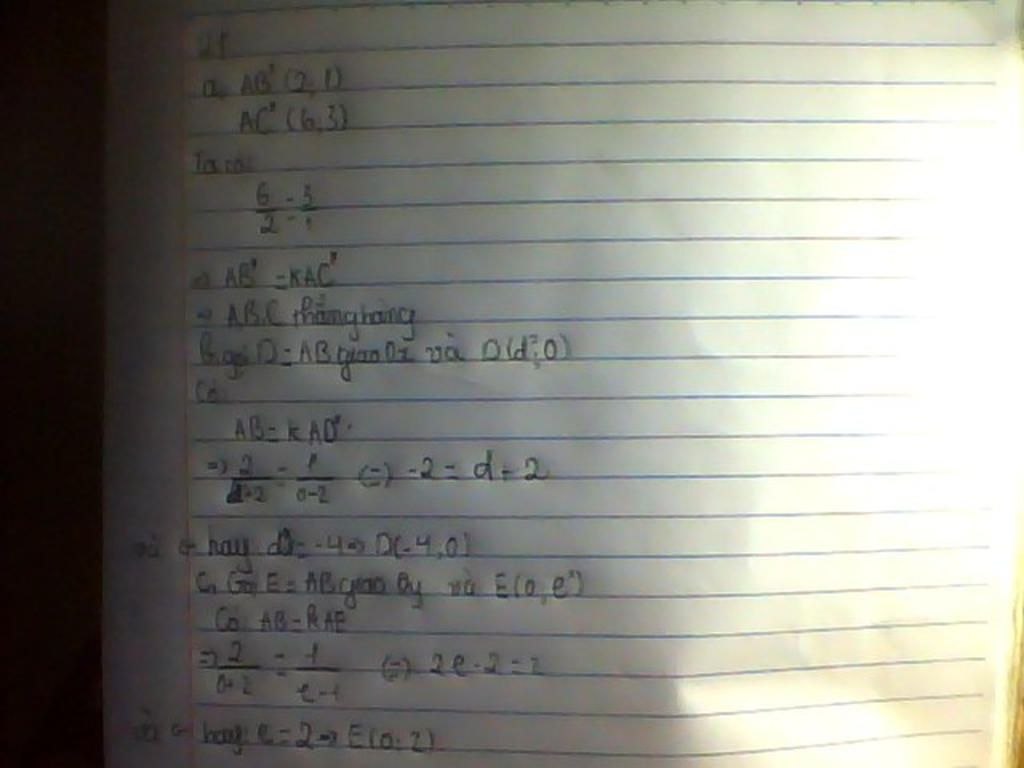 a, AB' (2, 1)
AC' (6, 3)
Ta có:
6/2 = 3/1
=> AB' = kAC'
=> A,B,C thẳng hàng
b, gọi D = AB giao Ox và D(d; 0)
Có:
AB = k AD'
=> 2/d+2 = 1/0-2 (=) -2 = d + 2
hay d = -4 => D(-4, 0)
C, Gọi E = AB giao Oy và E(0, e)
Có AB = kAE
=> 2/0+2 = 1/e-1 (=) 2e - 2 = 2
hay e = 2 => E(0; 2)